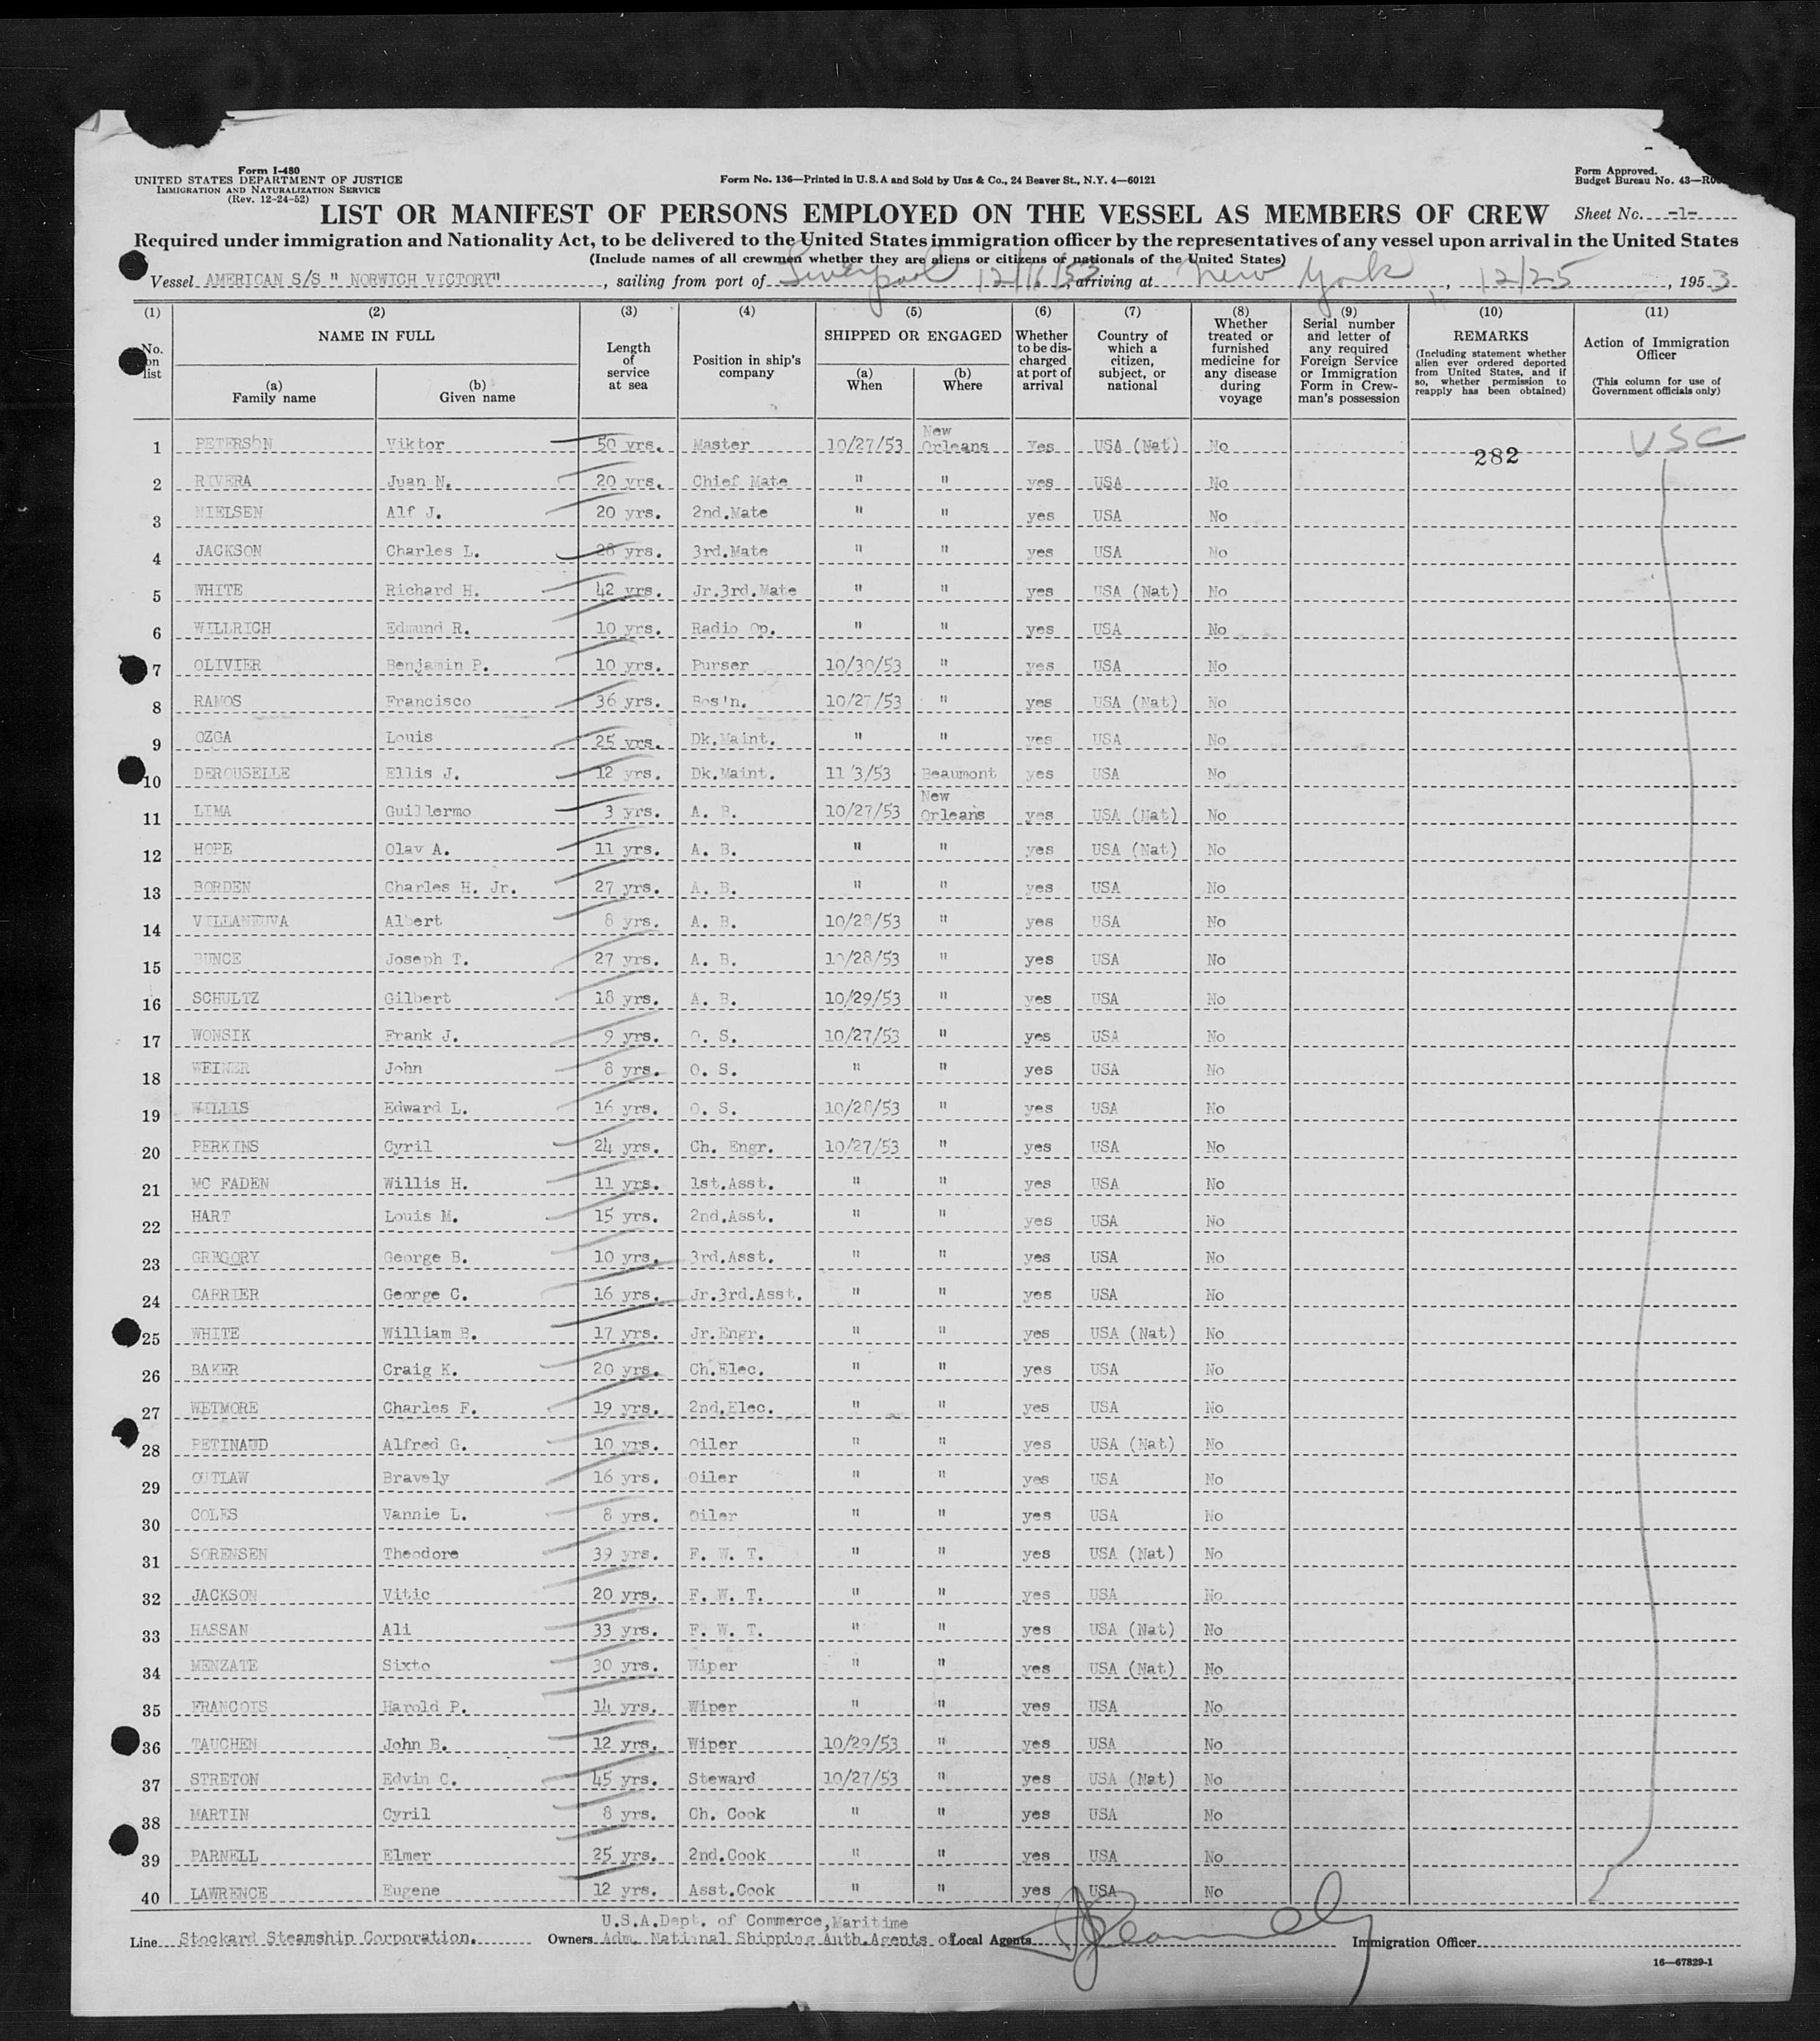 Form I-480
UNITED STATES DEPARTMENT OF JUSTICE
IMMIGRATION AND NATURALIZATION SERVICE
(Rev. 12-24-52)
Form No. 136—Printed in U.S.A and Sold by Unz & Co., 24 Beaver St., N.Y. 4—60121
Form Approved.
Budget Bureau No. 43—
LIST OR MANIFEST OF PERSONS EMPLOYED ON THE VESSEL AS MEMBERS OF CREW Sheet No. -1-
Required under immigration and Nationality Act, to be delivered to the United States immigration officer by the representatives of any vessel upon arrival in the United States
(Include names of all crewmen whether they are aliens or citizens or nationals of the United States)
Vessel AMERICAN S/S " NORWICH VICTORY" , sailing from port of Liverpool 12/16/53, arriving at New York, 12/25, 1953
(1) No. on list (2) NAME IN FULL (a) Family name (b) Given name (3) Length of service at sea (4) Position in ship's company (5) SHIPPED OR ENGAGED (a) When (b) Where (6) Whether to be discharged at port of arrival (7) Country of which a citizen, subject, or national (8) Whether treated or furnished medicine for any disease during voyage (9) Serial number and letter of any required Foreign Service or Immigration Form in Crewman's possession (10) REMARKS (Including statement whether alien ever ordered deported from United States, and if so, whether permission to reapply has been obtained) (11) Action of Immigration Officer (This column for use of Government officials only)
1 PETERSON Viktor 50 yrs. Master 10/27/53 New Orleans Yes USA (Nat) No 282 USC
2 RIVERA Juan N. 20 yrs. Chief Mate " " yes USA No
3 NIELSEN Alf J. 20 yrs. 2nd.Mate " " yes USA No
4 JACKSON Charles L. 28 yrs. 3rd.Mate " " yes USA No
5 WHITE Richard H. 42 yrs. Jr.3rd.Mate " " yes USA (Nat) No
6 WILLRICH Edmund R. 10 yrs. Radio Op. " " yes USA No
7 OLIVIER Benjamin P. 10 yrs. Purser 10/30/53 " yes USA No
8 RAMOS Francisco 36 yrs. Bos'n. 10/27/53 " yes USA (Nat) No
9 OZGA Louis 25 yrs. Dk.Maint. " " yes USA No
10 DEROUSELLE Ellis J. 12 yrs. Dk.Maint. 11/3/53 Beaumont yes USA No
11 LIMA Guillermo 3 yrs. A. B. 10/27/53 New Orleans yes USA (Nat) No
12 HOPE Olav A. 11 yrs. A. B. " " yes USA (Nat) No
13 BORDEN Charles H. Jr. 27 yrs. A. B. " " yes USA No
14 VILLANEUVA Albert 8 yrs. A. B. 10/28/53 " yes USA No
15 BUNCE Joseph T. 27 yrs. A. B. 10/28/53 " yes USA No
16 SCHULTZ Gilbert 18 yrs. A. B. 10/29/53 " yes USA No
17 WONSIK Frank J. 9 yrs. O. S. 10/27/53 " yes USA No
18 WEINER John 8 yrs. O. S. " " yes USA No
19 WILLIS Edward L. 16 yrs. O. S. 10/28/53 " yes USA No
20 PERKINS Cyril 24 yrs. Ch. Engr. 10/27/53 " yes USA No
21 MC FADEN Willis H. 11 yrs. 1st.Asst. " " yes USA No
22 HART Louis M. 15 yrs. 2nd.Asst. " " yes USA No
23 GREGORY George B. 10 yrs. 3rd.Asst. " " yes USA No
24 CARRIER George C. 16 yrs. Jr.3rd.Asst. " " yes USA No
25 WHITE William B. 17 yrs. Jr.Engr. " " yes USA (Nat) No
26 BAKER Craig K. 20 yrs. Ch.Elec. " " yes USA No
27 WETMORE Charles F. 19 yrs. 2nd.Elec. " " yes USA No
28 PETINAUD Alfred G. 10 yrs. Oiler " " yes USA (Nat) No
29 OUTLAW Bravely 16 yrs. Oiler " " yes USA No
30 COLES Vannie L. 8 yrs. Oiler " " yes USA No
31 SORENSEN Theodore 39 yrs. F. W. T. " " yes USA (Nat) No
32 JACKSON Vitic 20 yrs. F. W. T. " " yes USA No
33 HASSAN Ali 33 yrs. F. W. T. " " yes USA (Nat) No
34 MENZATE Sixto 30 yrs. Wiper " " yes USA (Nat) No
35 FRANCOIS Harold P. 14 yrs. Wiper " " yes USA No
36 TAUCHEN John B. 12 yrs. Wiper 10/29/53 " yes USA No
37 STRETON Edvin C. 45 yrs. Steward 10/27/53 " yes USA (Nat) No
38 MARTIN Cyril 8 yrs. Ch. Cook " " yes USA No
39 PARNELL Elmer 25 yrs. 2nd.Cook " " yes USA No
40 LAWRENCE Eugene 12 yrs. Asst.Cook " " yes USA No
U.S.A.Dept. of Commerce,Maritime
Line Stockard Steamship Corporation. Owners Adm. National Shipping Auth.Agents of Local Agents Immigration Officer
16—67829-1